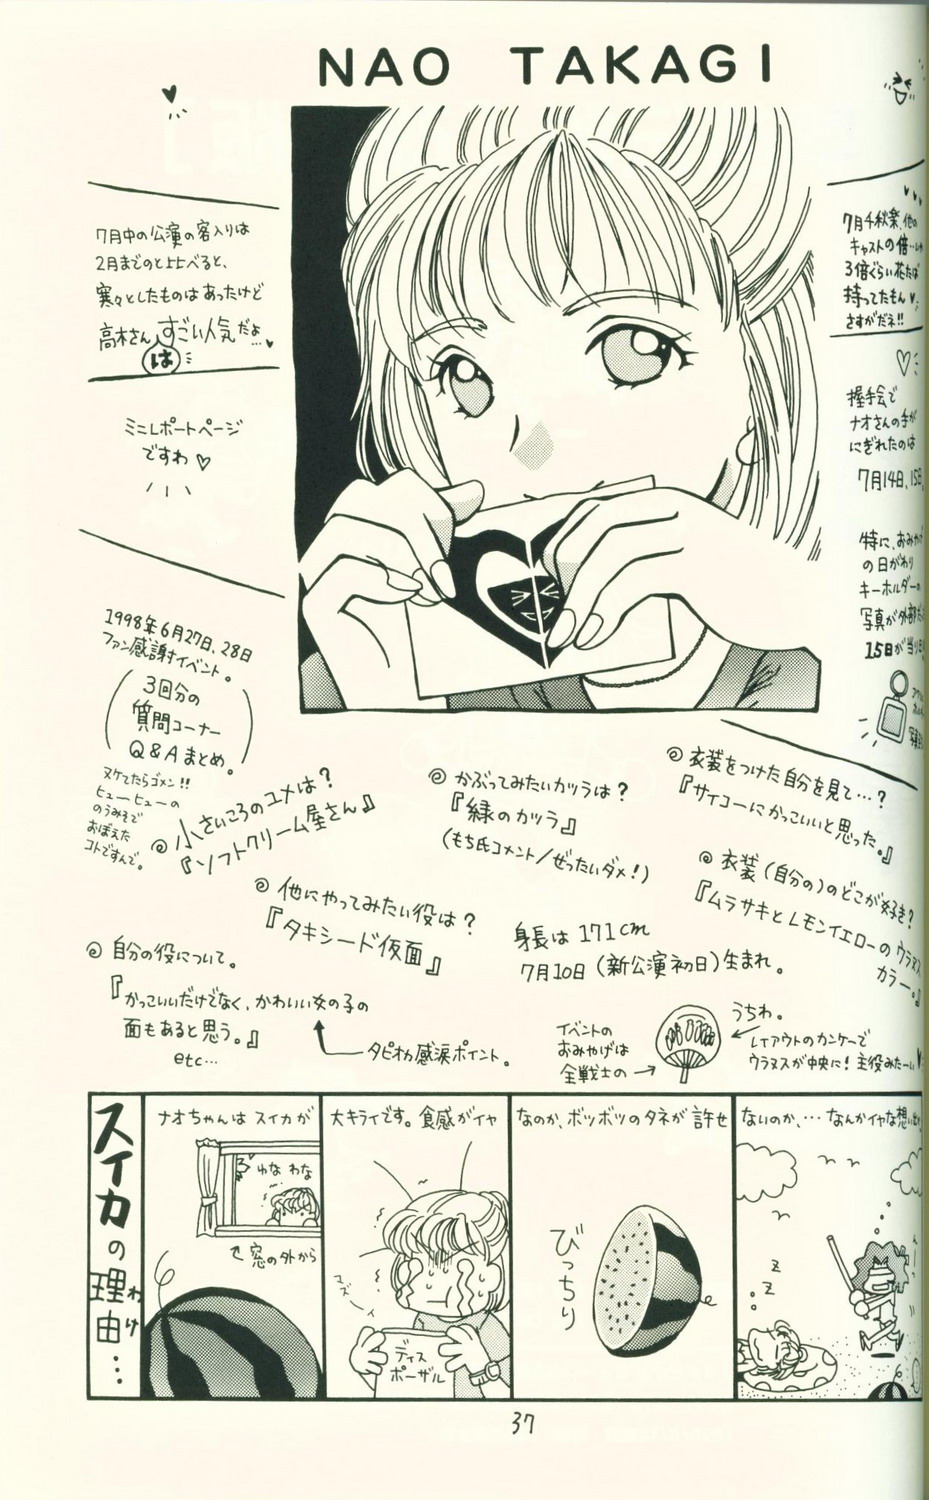 NAO TAKAGI
7月中の公演の客入りは
2月までのと比べると、
寒々としたものはあったけど
高木さんはすごい人気だよ…♥
ミニレポートページ
ですわ♡
7月千秋楽、他の
キャストの倍…
3倍ぐらい花たば
持ってたもん♥
さすがだネ!!
握手会で
ナオさんの手が
にぎれたのは
7月14日、15日
特に、おみやげ
の日がわり
キーホルダーの
写真が外部
15日が当り
1998年6月27日、28日
ファン感謝イベント。
3回分の
質問コーナー
Q&Aまとめ。
ヌケてたらゴメン!!
ヒューヒューの
のうみそで
おぼえた
コトですんで。
◎小さいころのユメは?
『ソフトクリーム屋さん』
◎かぶってみたいカツラは?
『緑のカツラ』
(もち氏コメント/ぜったいダメ!)
◎衣装をつけた自分を見て…?
『サイコーにかっこいいと思った。』
◎衣装(自分の)のどこが好き?
『ムラサキとレモンイエローのウラヌス
カラー。』
◎他にやってみたい役は?
『タキシード仮面』
身長は171cm
7月10日(新公演初日)生まれ。
◎自分の役について。
『かっこいいだけでなく、かわいい女の子の
面もあると思う。』
etc…
タピオカ感涙ポイント。
イベントの
おみやげは
全戦士の→
うちわ。
レイアウトのカンケーで
ウラヌスが中央に!主役みたーい♥
スイカの理由…
わけ
ナオちゃんは スイカが
わな わな
←窓の外から
大キライです。食感がイヤ
マズーイ
ディス
ポーザル
なのか、ボツボツのタネが 許せ
びっちり
ないのか、… なんかイヤな想い出
z
z
z
37